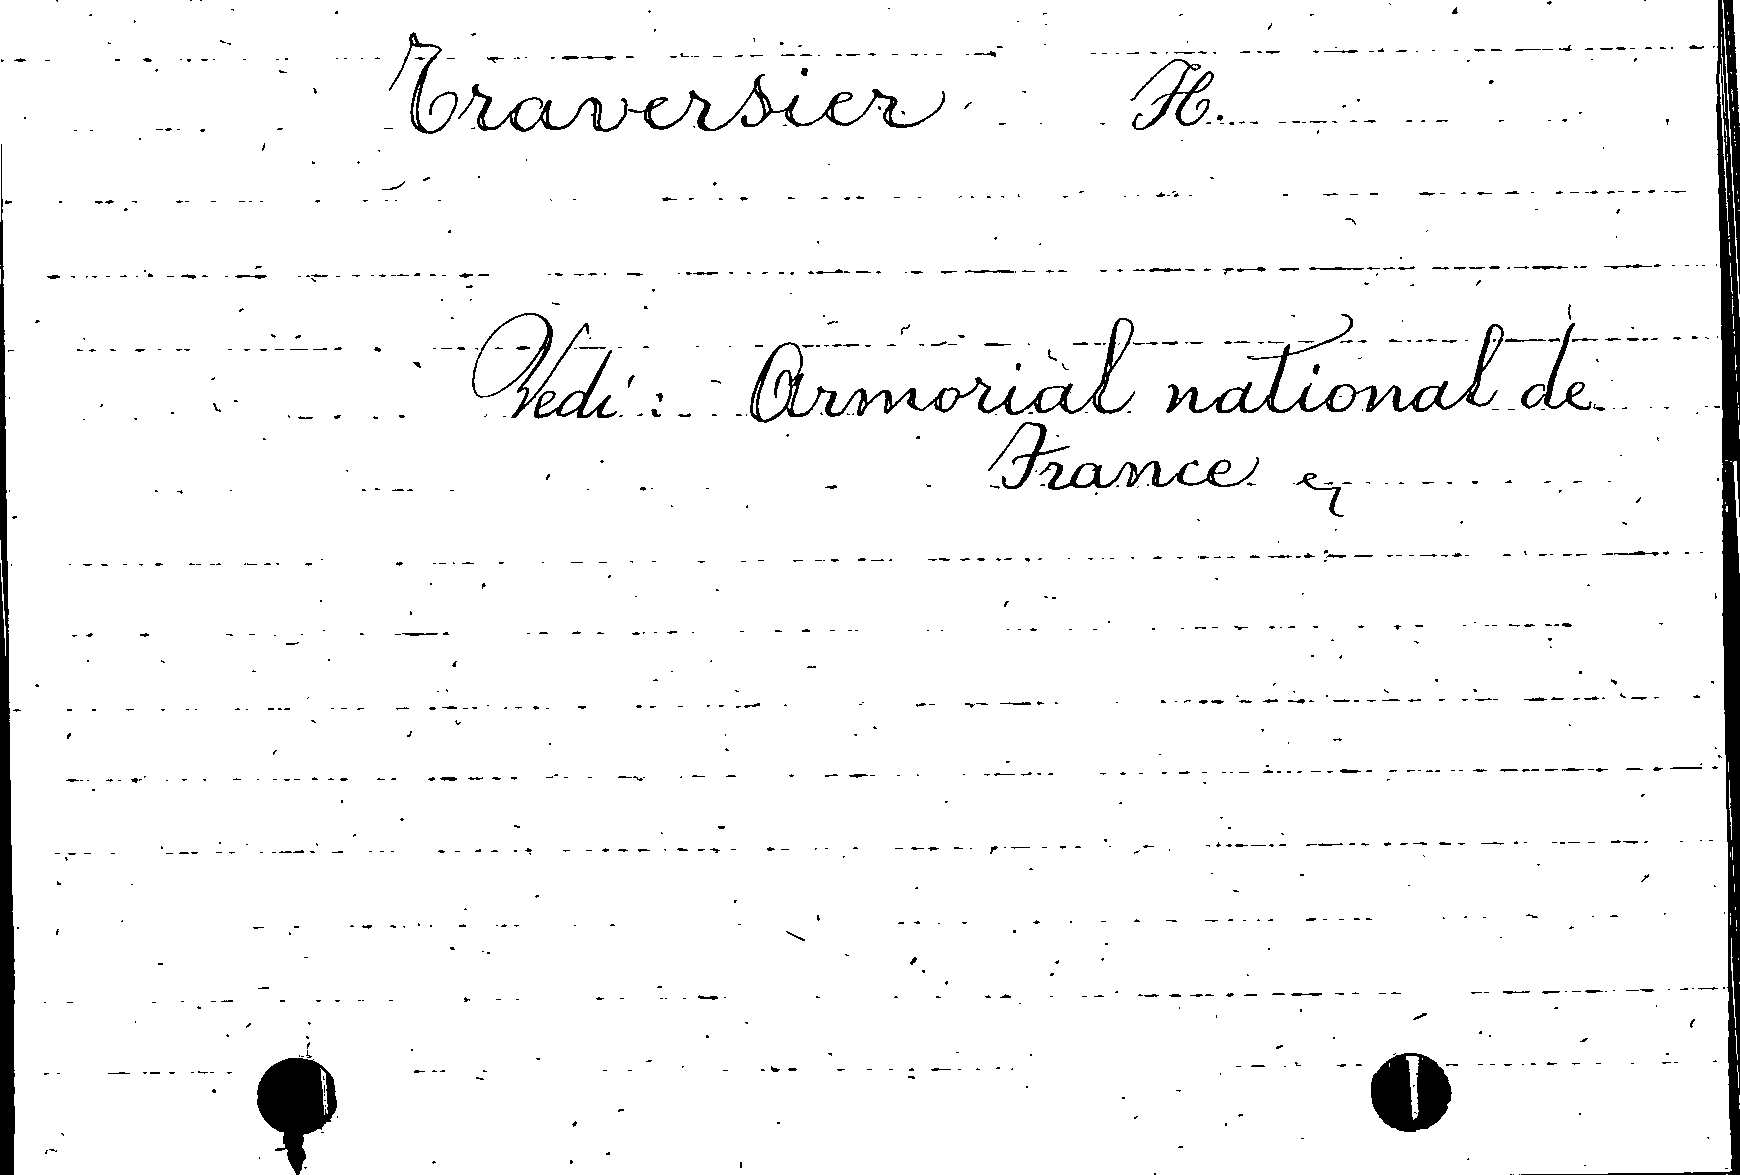 Traversier H.
Vedi: Armorial national de
France